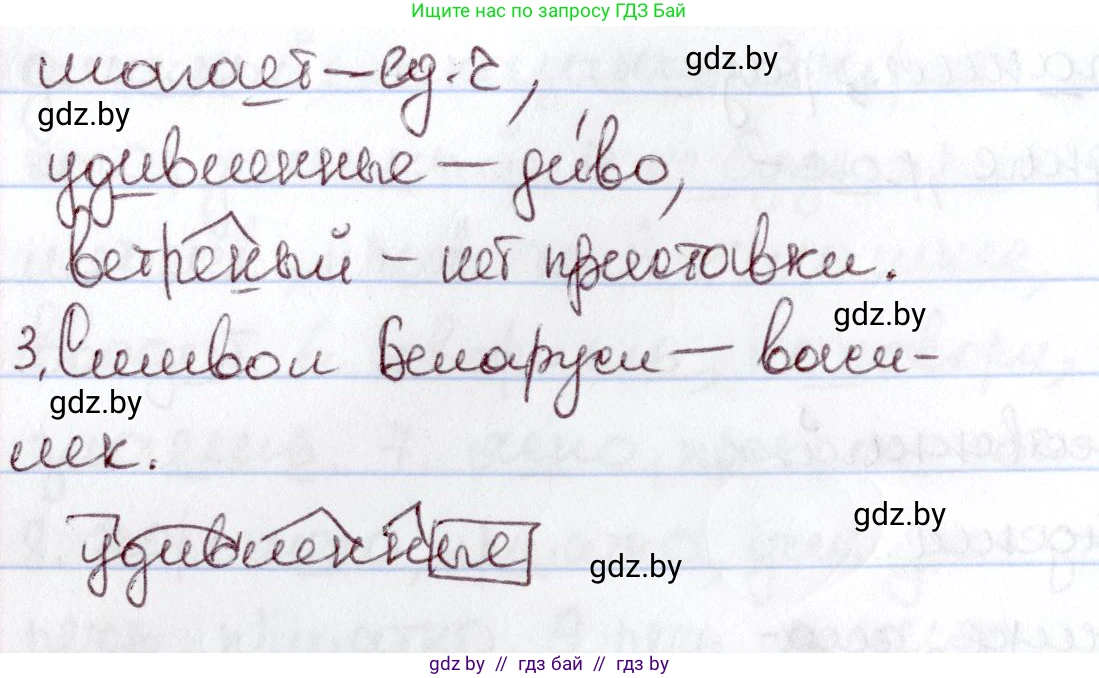 Ищите нас по запросу ГДЗ Бай
шагает – ед. ч,
gdz.by
gdz.by
удивленные – ди́во,
ветреный – нет приставки.
gdz.by
3. Символ Беларуси – васи-
gdz.by
лек.
gdz.by
удивленные
gdz.by
gdz.by // гдз бай // гдз by